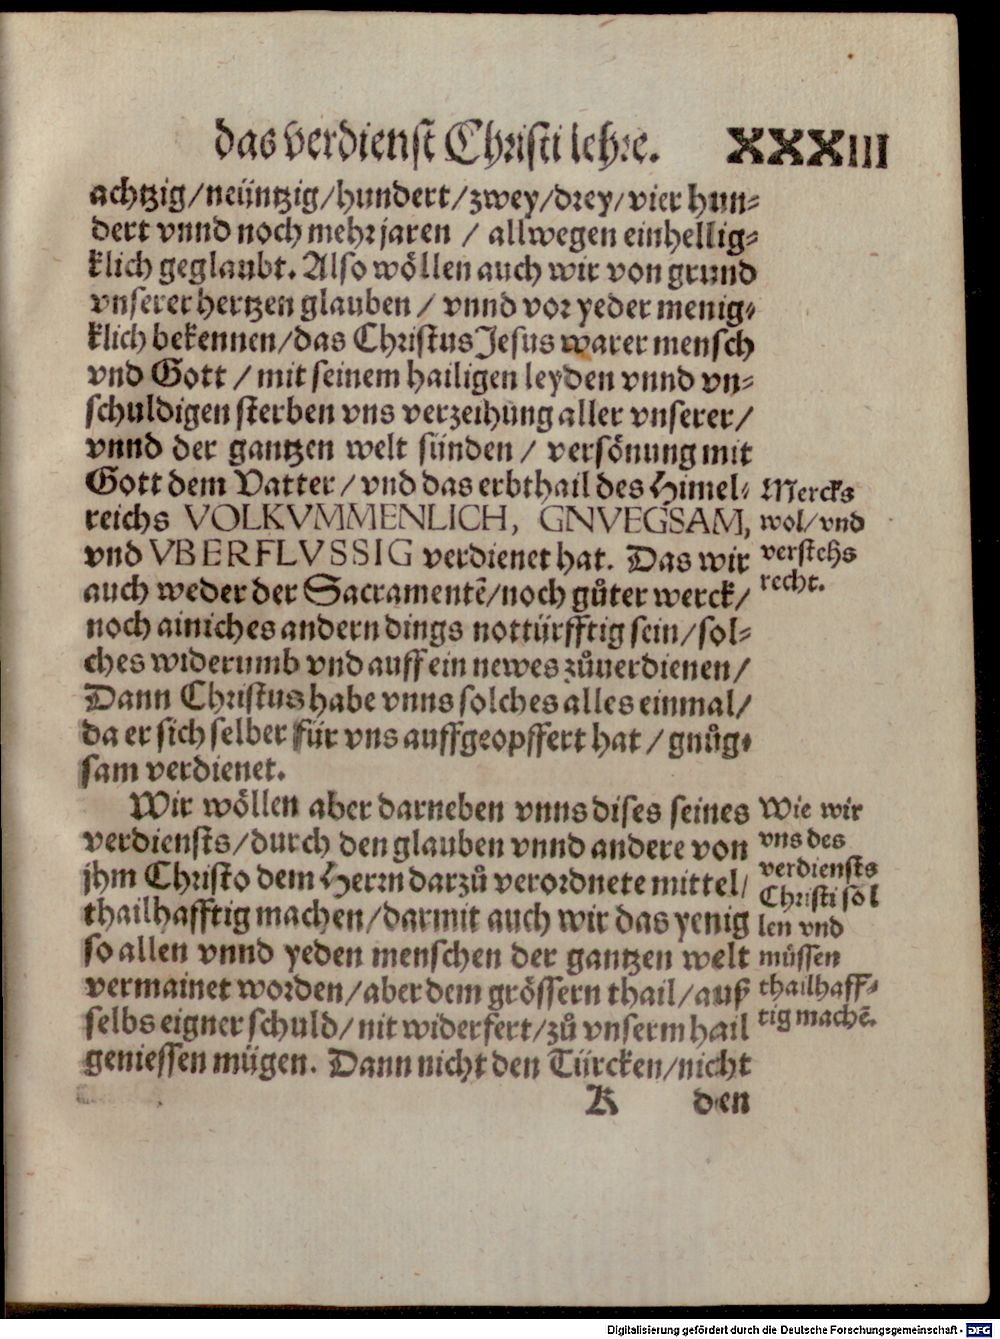 das verdienst Christi lehre. XXXIII
achtzig/neüntzig/hundert/zwey/drey/vier hun-
dert vnnd noch mehr jaren / allwegen einhellig-
klich geglaubt. Also wöllen auch wir von grund
vnserer hertzen glauben / vnnd vor yeder menig-
klich bekennen/das Christus Jesus warer mensch
vnd Gott / mit seinem hailigen leyden vnnd vn-
schuldigen sterben vns verzeihung aller vnserer/
vnnd der gantzen welt sünden / versönung mit
Gott dem Vatter / vnd das erbthail des Himel-
reichs VOLKVMMENLICH, GNVEGSAM,
vnd VBERFLVSSIG verdienet hat. Das wir
auch weder der Sacramentē/noch gůter werck/
noch ainiches andern dings nottürfftig sein/sol-
ches widerumb vnd auff ein newes zůuerdienen/
Dann Christus habe vnns solches alles einmal/
da er sich selber für vns auffgeopffert hat / gnůg-
sam verdienet.
Mercks
wol/vnd
verstehs
recht.
Wir wöllen aber darneben vnns dises seines
verdiensts/durch den glauben vnnd andere von
jhm Christo dem Herrn darzů verordnete mittel/
thailhafftig machen/darmit auch wir das yenig
so allen vnnd yeden menschen der gantzen welt
vermainet worden/aber dem grössern thail/auß
selbs eigner schuld/nit widerfert/zů vnserm hail
geniessen mügen. Dann nicht den Türcken/nicht
Wie wir
vns des
verdiensts
Christi söl
len vnd
müssen
thailhaff-
tig machē.
K den
Digitalisierung gefördert durch die Deutsche Forschungsgemeinschaft - DFG